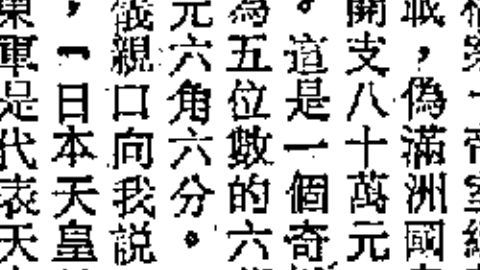 一帝室
，偽滿洲國
開支八十萬元
。這是一個奇
為五位數的六
元六角六分。
儀親口向我説
，「日本天皇
東軍是代表天